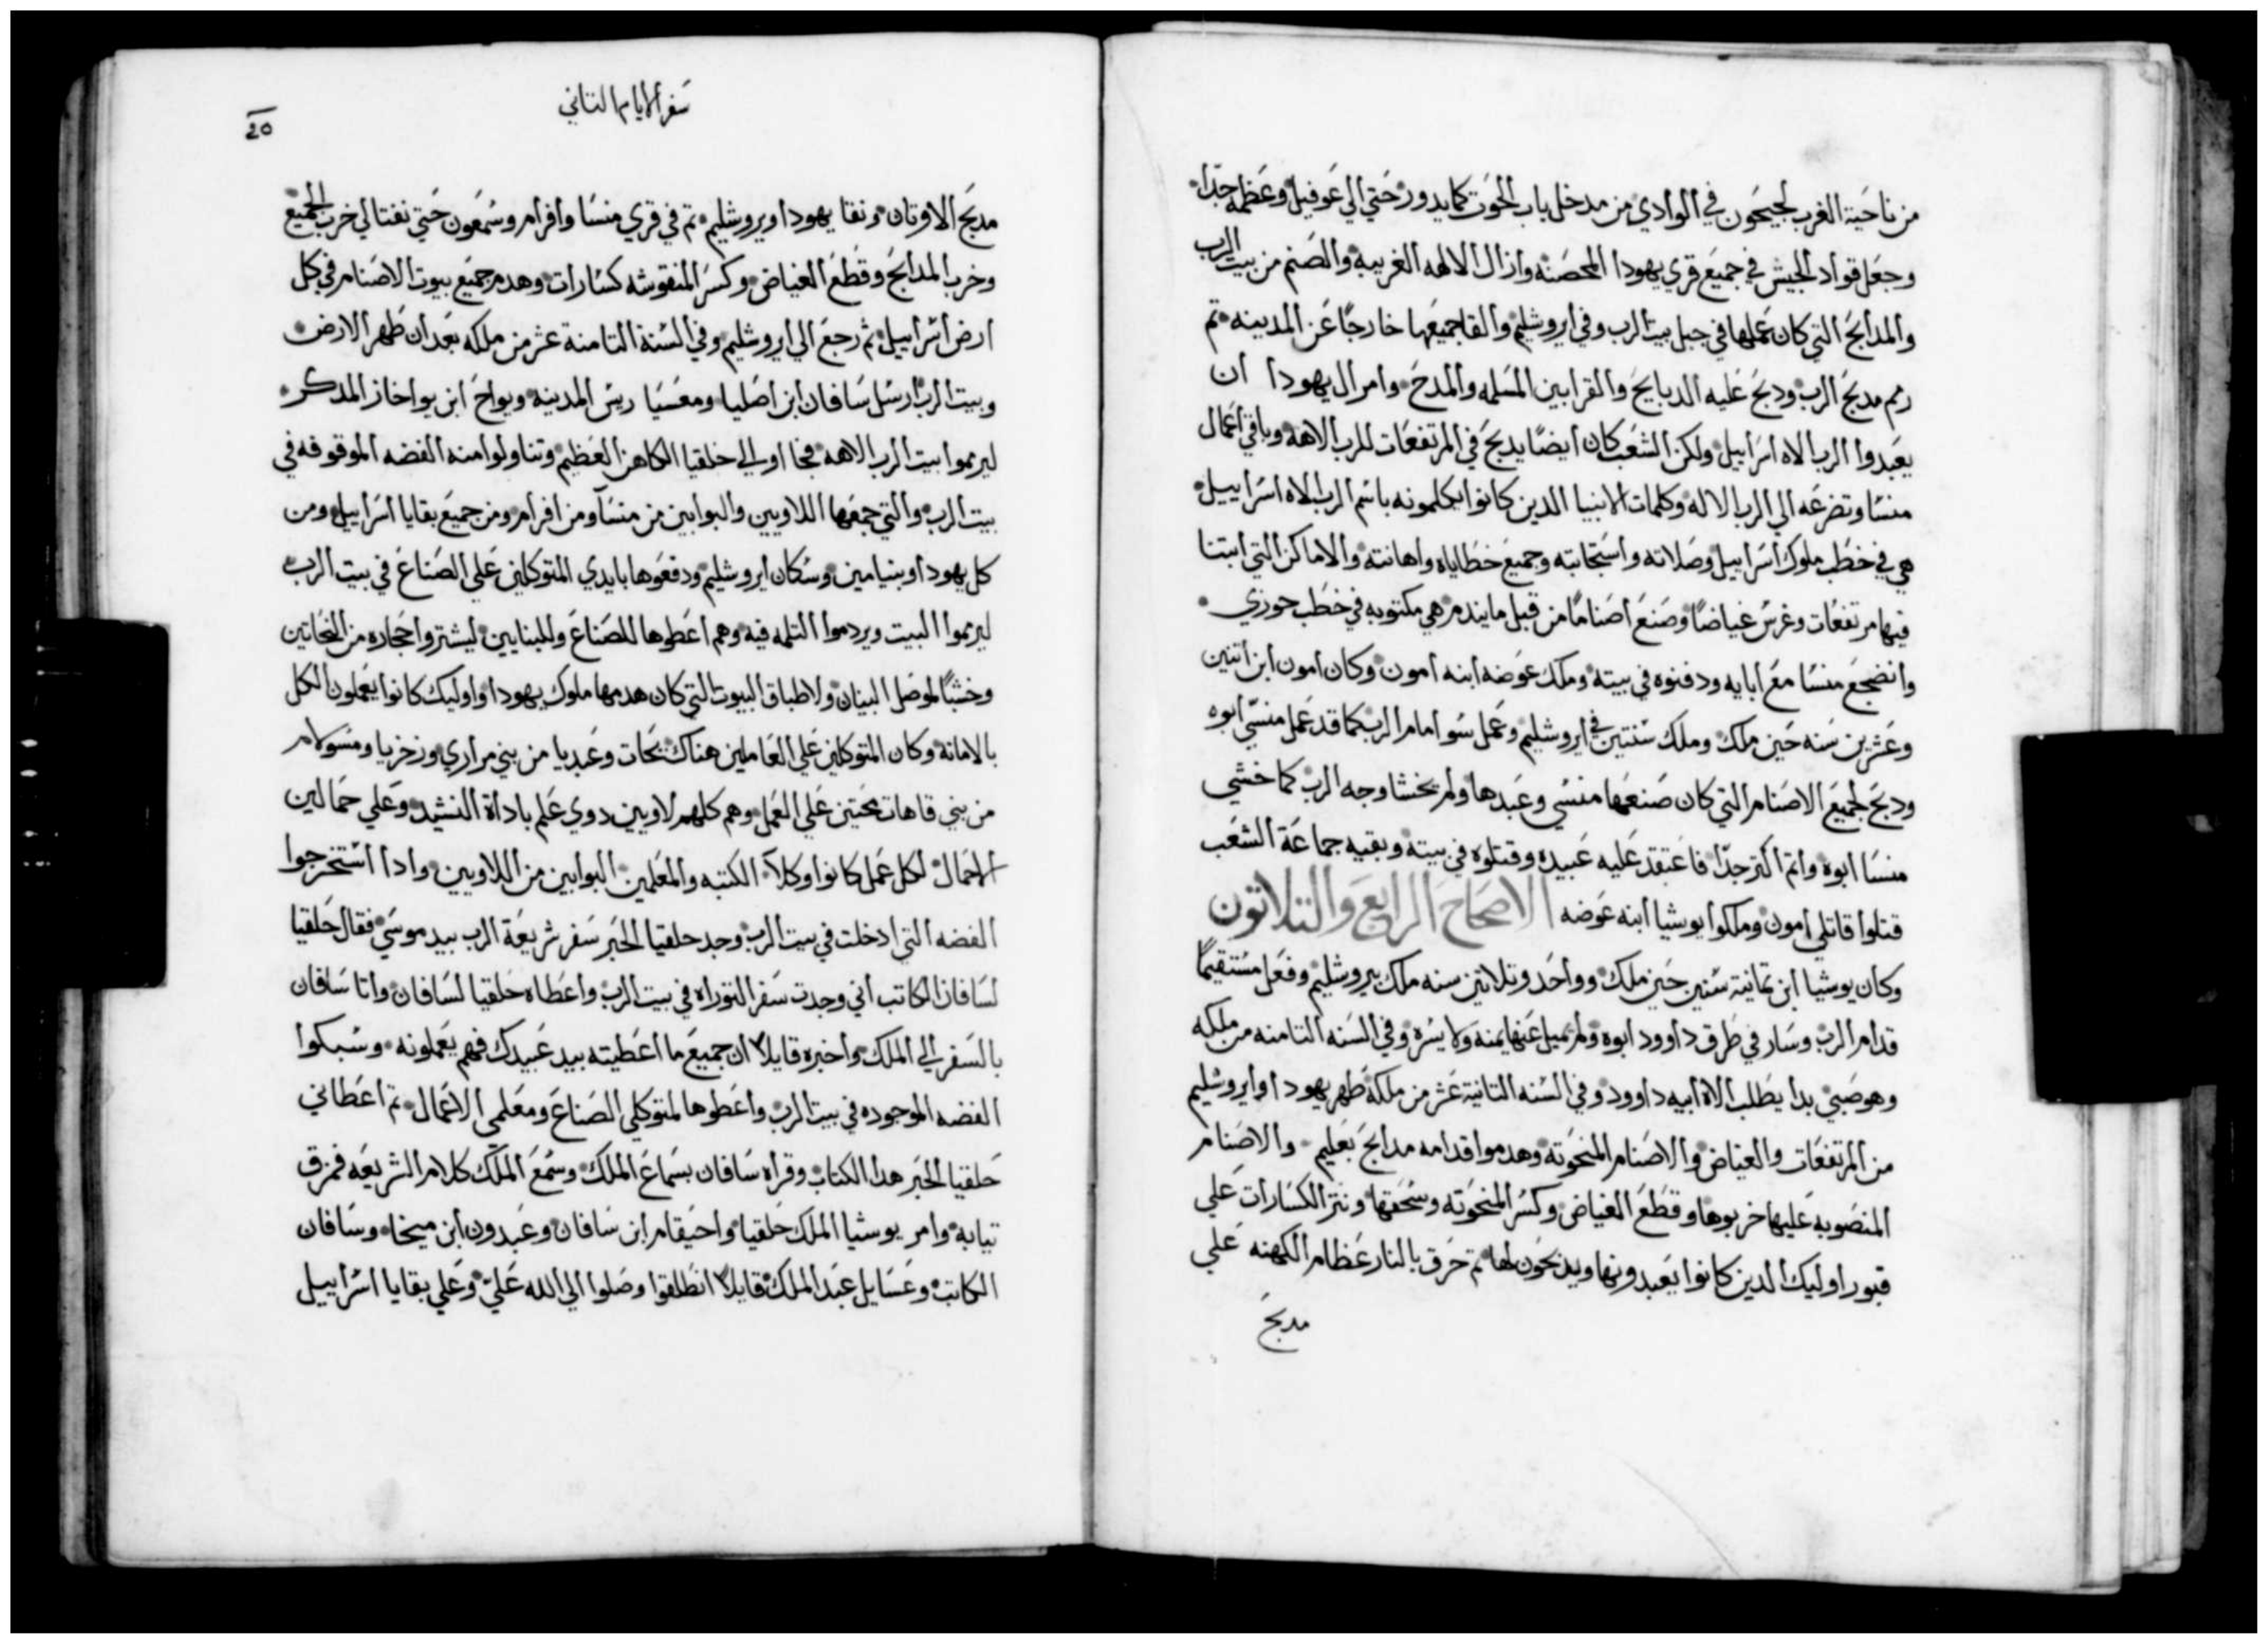 من ناحية الغرب لجيحون في الوادي من مدخل باب الحوت كما يدور حتي الي عوفيل وعظمه جدا
وجعل قواد الجيش في جميع قري يهودا المحصنه وازال الالهه الغريبه والصنم من بيت الرب
والمدابح التي كان عملها في جبل بيت الرب وفي ايروشليم والقا جميعها خارجًا عن المدينه تم
رمم مدبح الرب ودبح عليه الدبايح والقرابين المسلمه والمدح وامر ال يهودا ان
يعبدوا الرب الاه اسراييل ولكن الشعب كان ايضًا يدبح في المرتفعات للرب الاهه وباقي اعمال
منسا وتضرعه الي الرب الاله وكلمات الانبيا الدين كانوا يكلمونه باسم الرب الاه اسراييل
هي في خطب ملوك اسراييل وصلاته واستجابته وجميع خطاياه واهانته والاماكن التي ابتنا
فيها مرتفعات وغرس غياضًا وصنع اصنامًا من قبل ما يندم هي مكتوبه في خطب حوزي
وانضجع منسا مع ابايه ودفنوه في بيته وملك عوضه ابنه امون وكان امون ابن اتنين
وعشرين سنه حين ملك وملك سنتين في ايروشليم وعمل سو امام الرب كما قد عمل منسي ابوه
ودبح لجميع الاصنام التي كان صنعها منسي وعبدها ولم يخشا وجه الرب كما خشي
منسا ابوه واتم اكتر جدًا فاعتقد عليه عبيده وقتلوه في بيته وبقيه جماعة الشعب
قتلوا قاتلي امون وملكوا يوشيا ابنه عوضه الاصحاح الرابع والتلاتون
وكان يوشيا ابن تمانية سنين حين ملك وواحد وتلاتين سنه ملك بيروشليم وفعل مستقيمًا
قدام الرب وسار في طرق داوود ابوه ولم يميل عنها يمنه ولا يسره وفي السنه التامنه من ملكه
وهو صبي بدا يطلب الاه ابيه داوود وفي السنه التانية عشر من ملكه طهر يهودا وايروشليم
من المرتفعات والغياض والاصنام المنحوته وهدموا قدامه مدابح بعليم والاصنام
المنصوبه عليها خربوها وقطع الغياض وكسر المنحوته وسحقها ونتر الكسارات علي
قبور اوليك الدين كانوا يعبدونها ويدبحون لها تم حرق بالنار عظام الكهنه علي
مدبح
سفر الايام التاني
مدبح الاوتان ونقا يهودا ويروشليم تم في قري منسا وافرام وسمعون حتي نفتالي خرب الجميع
وخرب المدابح وقطع الغياض وكسر المنقوشه كسارات وهدم جميع بيوت الاصنام في كل
ارض اسراييل ثم رجع الي ايروشليم وفي السنة التامنة عشر من ملكه بعد ان طهر الارض
وبيت الرب ارسل سافان ابن اصليا ومعسيا ريس المدينه ويواح ابن يواخاز المدكر
ليرمموا بيت الرب الاهه فجااو الي حلقيا الكاهن العظيم وتناولوا منه الفضه الموقوفه في
بيت الرب والتي جمعها اللاويين والبوابين من منسا ومن افرام ومن جميع بقايا اسراييل ومن
كل يهودا وبنيامين وسكان ايروشليم ودفعوها بايدي المتوكلين علي الصناع في بيت الرب
ليرمموا البيت ويردموا التلمه فيه وهم اعطوها للصناع وللبنايين ليشتروا حجاره من النحاتين
وخشبًا لوصل البنيان ولاطباق البيوت التي كان هدمها ملوك يهودا واوليك كانوا يعملون الكل
بالامانه وكان المتوكلين علي العاملين هناك نحات وعبديا من بني مراري وزخريا ومسولام
من بني قاهات محتين علي العمل وهم كلهم لاويين دوي علم باداة النشيد وعلي حمالين
الاحمال لكل عمل كانوا وكلا الكتبه والمعلمين البوابين من اللاويين وادا استخرجوا
الفضه التي ادخلت في بيت الرب وجد حلقيا الحبر سفر شريعة الرب بيد موسي فقال حلقيا
لسافان الكاتب اني وجدت سفر التوراه في بيت الرب واعطاه حلقيا لسافان واتا سافان
بالسفر الي الملك واخبره قايلاً ان جميع ما اعطيته بيد عبيدك فهم يعملونه وسبكوا
الفضه الموجوده في بيت الرب واعطوها لمتوكلي الصناع ومعلمي الاعمال تم اعطاني
حلقيا الحبر هدا الكتاب وقراه سافان بسماع الملك وسمع الملك كلام الشريعه فمزق
تيابه وامر يوشيا الملك حلقيا واحيقام ابن سافان وعبدون ابن ميخا وسافان
الكاتب وعسايل عبد الملك قايلاً انطلقوا وصلوا الي الله علي وعلي بقايا اسراييل